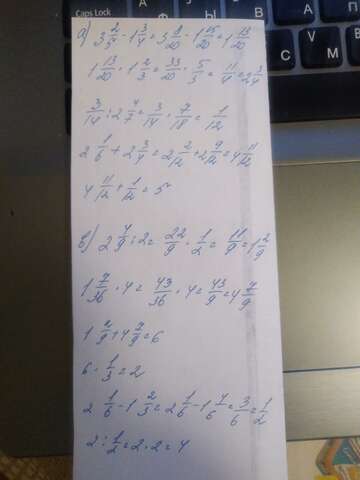 Caps Lock
A
Z
а) 3 2/5 - 1 3/4 = 3 8/20 - 1 15/20 = 1 13/20
1 13/20 · 1 2/3 = 33/20 · 5/3 = 11/4 = 2 3/4
3/14 : 2 4/7 = 3/14 · 7/18 = 1/12
2 1/6 + 2 3/4 = 2 2/12 + 2 9/12 = 4 11/12
4 11/12 + 1/12 = 5
в) 2 4/9 : 2 = 22/9 · 1/2 = 11/9 = 1 2/9
1 7/36 · 4 = 43/36 · 4 = 43/9 = 4 7/9
1 2/9 + 4 7/9 = 6
6 · 1/3 = 2
2 1/6 - 1 2/3 = 2 1/6 - 1 4/6 = 3/6 = 1/2
2 : 1/2 = 2 · 2 = 4